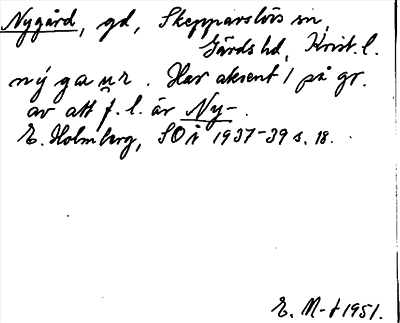 Nygård, gd, Skepparslövs sn,
Gärds hd, Krist. l.
nýgaur. Har aksent 1 på gr.
av att f. l. är Ny-.
E. Holmberg, SOÅ 1937-39 s. 18.
E. M-f 1951.